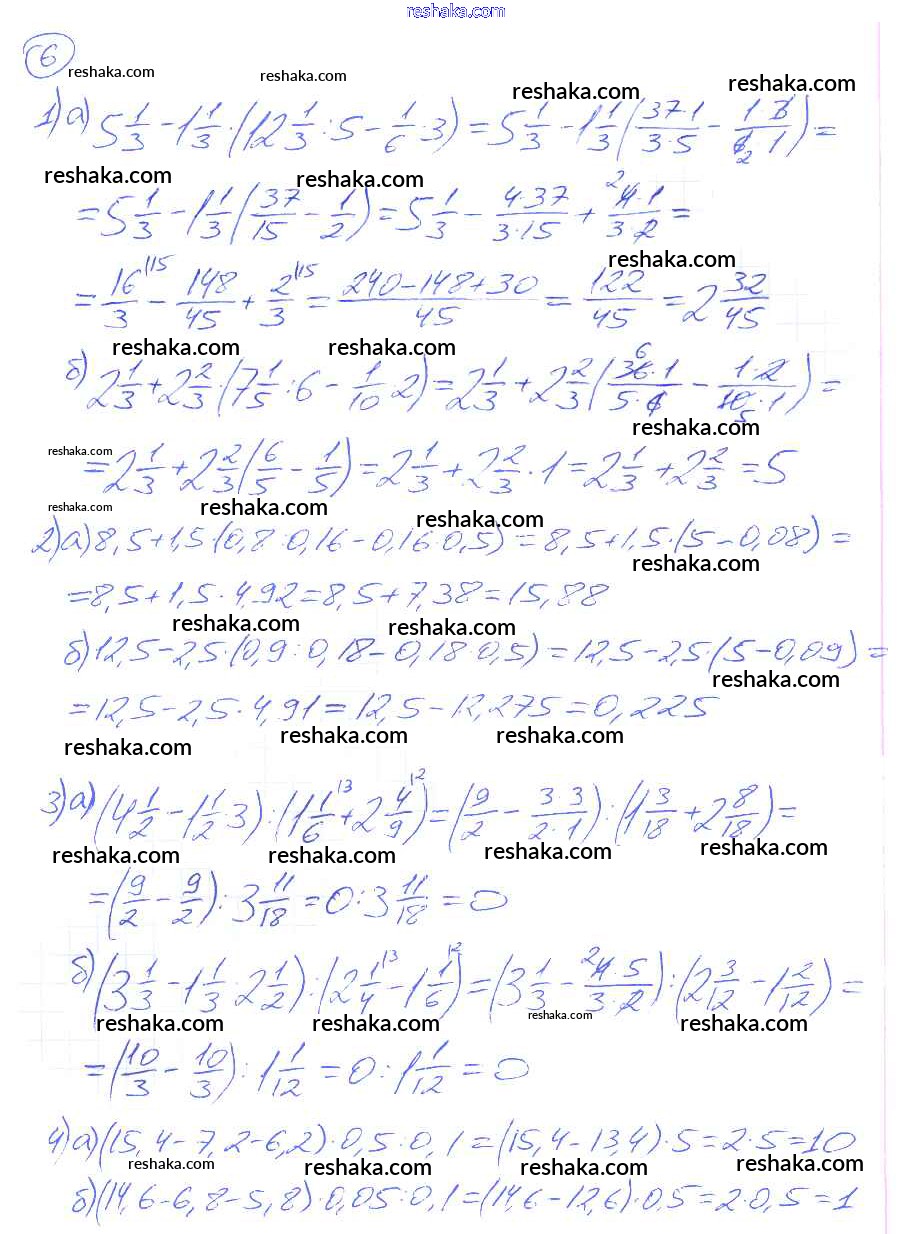 reshaka.com
6
reshaka.com reshaka.com reshaka.com reshaka.com
1) а) 5 1/3 - 1 1/3 · (12 1/3 : 5 - 1/6 · 3) = 5 1/3 - 1 1/3 (37·1/3·5 - 1·3/6·1) =
2
reshaka.com reshaka.com
= 5 1/3 - 1 1/3 (37/15 - 1/2) = 5 1/3 - 4·37/3·15 + 4·1/3·2 =
2
reshaka.com
= 16/3 |15 - 148/45 + 2/3 |15 = 240-148+30/45 = 122/45 = 2 32/45
reshaka.com reshaka.com
б) 2 1/3 + 2 2/3 · (7 1/5 : 6 - 1/10 · 2) = 2 1/3 + 2 2/3 (36·1/5·6 - 1·2/10·1) =
6 5
reshaka.com
reshaka.com
= 2 1/3 + 2 2/3 (6/5 - 1/5) = 2 1/3 + 2 2/3 · 1 = 2 1/3 + 2 2/3 = 5
reshaka.com reshaka.com reshaka.com
2) а) 8,5+1,5·(0,8:0,16-0,16·0,5) = 8,5+1,5·(5-0,08) =
reshaka.com
= 8,5+1,5·4,92=8,5+7,38=15,88
reshaka.com reshaka.com
б) 12,5-2,5·(0,9:0,18-0,18·0,5)=12,5-2,5·(5-0,09)=
reshaka.com
=12,5-2,5·4,91=12,5-12,275=0,225
reshaka.com reshaka.com reshaka.com
3) а) (4 1/2 - 1 1/2 · 3) : (1 1/6 |3 + 2 4/9 |2) = (9/2 - 3·3/2·1) : (1 3/18 + 2 8/18) =
reshaka.com reshaka.com reshaka.com reshaka.com
= (9/2 - 9/2) : 3 11/18 = 0 : 3 11/18 = 0
б) (3 1/3 - 1 1/3 · 2 1/2) : (2 1/4 |3 - 1 1/6 |2) = (3 1/3 - 4·5/3·2) : (2 3/12 - 1 2/12) =
2
reshaka.com reshaka.com reshaka.com reshaka.com
= (10/3 - 10/3) : 1 1/12 = 0 : 1 1/12 = 0
4) а) (15,4-7,2-6,2)·0,5:0,1=(15,4-13,4)·5=2·5=10
reshaka.com reshaka.com reshaka.com reshaka.com
б) (14,6-6,8-5,8)·0,05:0,1=(14,6-12,6)·0,5=2·0,5=1